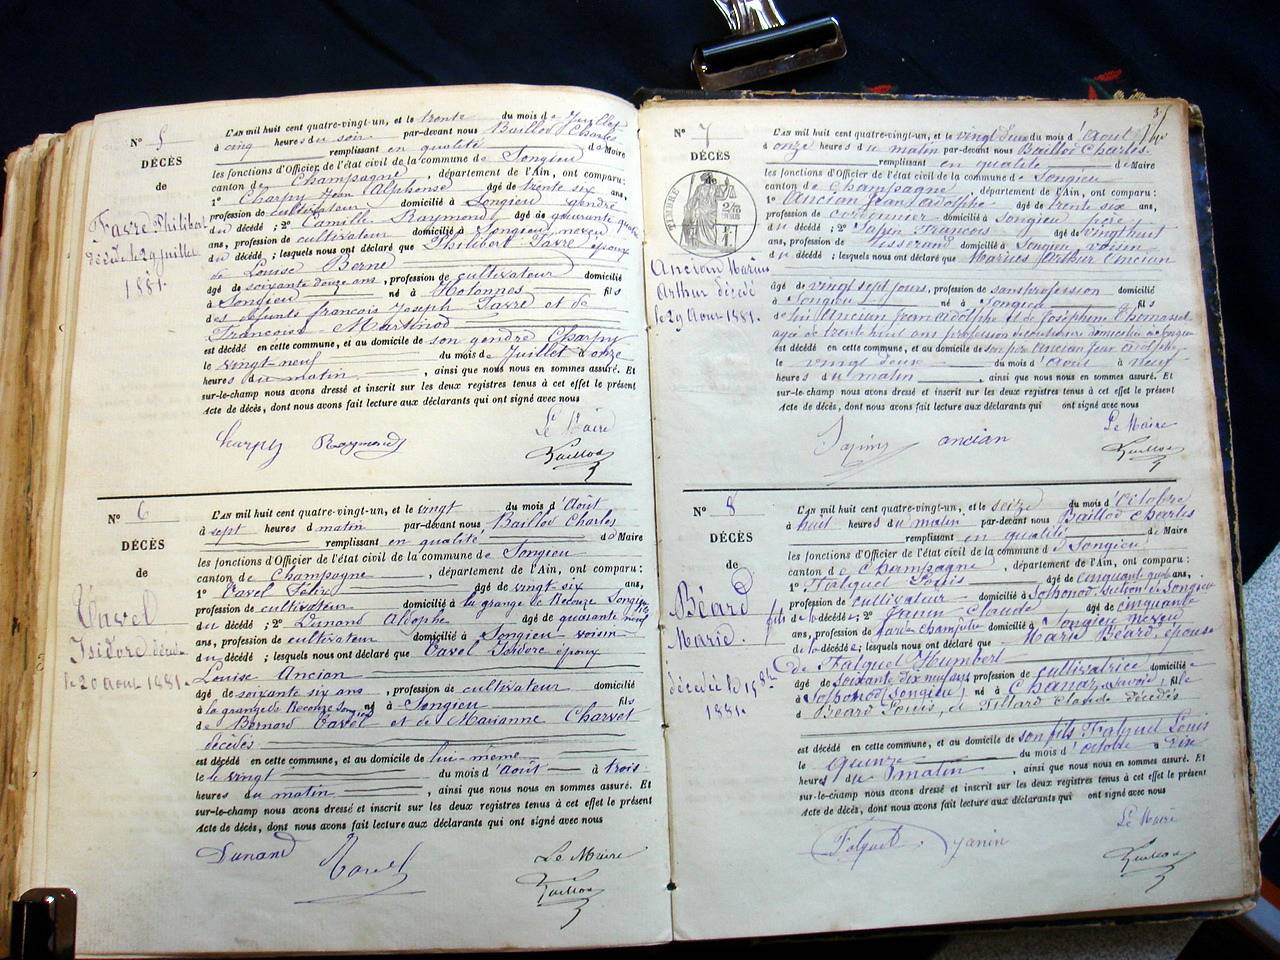 N° 5
DÉCÈS
de
Favre Philibert
décédé le 29 juillet
1881.
L'AN mil huit cent quatre-vingt-un, et le trente du mois de Juillet
à cinq heures du soir par-devant nous Bailloz Charles
remplissant en qualité de Maire
les fonctions d'Officier de l'état civil de la commune de Songieu
canton de Champagne, département de l'Ain, ont comparu:
1° Charpy Jean Alphonse âgé de trente six ans,
profession de cultivateur domicilié à Songieu gendre
du décédé; 2° Camille Raymond âgé de quarante quatre
ans, profession de cultivateur domicilié à Songieu neveu
du décédé; lesquels nous ont déclaré que Philibert Favre époux
de Louise Berne
âgé de soixante douze ans, profession de cultivateur domicilié
à Songieu né à Hotonnes fils
des défunts françois Joseph Favre et de
Françoise Martinod
est décédé en cette commune, et au domicile de son gendre Charpy
le vingt-neuf du mois de Juillet à onze
heures du matin, ainsi que nous nous en sommes assuré. Et
sur-le-champ nous avons dressé et inscrit sur les deux registres tenus à cet effet le présent
Acte de décès, dont nous avons fait lecture aux déclarants qui ont signé avec nous
Charpy Raymond Le Maire
Bailloz
N° 6
DÉCÈS
de
Tavel
Isidore décédé
le 20 aout 1881.
L'AN mil huit cent quatre-vingt-un, et le vingt du mois d'Août
à sept heures du matin par-devant nous Bailloz Charles
remplissant en qualité de Maire
les fonctions d'Officier de l'état civil de la commune de Songieu
canton de Champagne, département de l'Ain, ont comparu:
1° Tavel Félix âgé de vingt-six ans,
profession de cultivateur domicilié à la grange de Reconze Songieu
du décédé; 2° Dunand Adolphe âgé de quarante neuf
ans, profession de cultivateur domicilié à Songieu voisin
du décédé; lesquels nous ont déclaré que Tavel Isidore époux
Louise Ancian
âgé de soixante six ans, profession de cultivateur domicilié
à la grange de Reconze Songieu, né à Songieu fils
de Bernard Tavel et de Marianne Charvet
décédés
est décédé en cette commune, et au domicile de lui-même
le vingt du mois d'Août à trois
heures du matin, ainsi que nous nous en sommes assuré. Et
sur-le-champ nous avons dressé et inscrit sur les deux registres tenus à cet effet le présent
Acte de décès, dont nous avons fait lecture aux déclarants qui ont signé avec nous
Dunand Tavel Le Maire
Bailloz
N° 7
DÉCÈS
de
TIMBRE
Ancian Marius
Arthur décédé
le 29 Aout 1881.
L'AN mil huit cent quatre-vingt-un, et le vingt deux du mois d'Août
à onze heures du matin par-devant nous Bailloz Charles
remplissant en qualité de Maire
les fonctions d'Officier de l'état civil de la commune de Songieu
canton de Champagne, département de l'Ain, ont comparu:
1° Ancian Jean Adolphe âgé de trente six ans,
profession de cordonnier domicilié à Songieu père
du décédé; 2° Sapin François âgé de vingt huit
ans, profession de Tisserand domicilié à Songieu voisin
du décédé; lesquels nous ont déclaré que Marius Arthur Ancian
âgé de vingt sept jours, profession de sans profession domicilié
à Songieu né à Songieu fils
de lui Ancian jean adolphe et de Joséphine Thomasset
agée de trente huit ans profession de domiciliée à Songieu
est décédé en cette commune, et au domicile de son père Ancian Jean adolphe
le vingt deux du mois d'Aout à neuf
heures du matin, ainsi que nous nous en sommes assuré. Et
sur-le-champ nous avons dressé et inscrit sur les deux registres tenus à cet effet le présent
Acte de décès, dont nous avons fait lecture aux déclarants qui ont signé avec nous
Sapin ancian Le Maire
Bailloz
N° 8
DÉCÈS
de
Béard
Marie.
décédée le
1881.
L'AN mil huit cent quatre-vingt-un, et le seize du mois d'Octobre
à huit heures du matin par-devant nous Bailloz Charles
remplissant en qualité de Maire
les fonctions d'Officier de l'état civil de la commune de Songieu
canton de Champagne, département de l'Ain, ont comparu:
1° Falquet Louis âgé de cinquante ans,
fils profession de cultivateur domicilié à Sothonod, section de Songieu
de la décédée; 2° Janin Claude âgé de cinquante
ans, profession de garde champêtre domicilié à Songieu neveu
de la décédée; lesquels nous ont déclaré que Marie Béard, épouse
de Falquet Humbert
âgé de soixante dix neuf ans profession de cultivatrice domicilié
à Sothonod (Songieu) né à Chanaz, (Savoie) fille
d Béard Louis, de Villard Claude décédés
est décédé en cette commune, et au domicile de son fils Falquet Louis
le Quinze du mois d'octobre à Dix
heures du matin, ainsi que nous nous en sommes assuré. Et
sur-le-champ nous avons dressé et inscrit sur les deux registres tenus à cet effet le présent
Acte de décès, dont nous avons fait lecture aux déclarants qui ont signé avec nous
Falquet Janin Le Maire
Bailloz